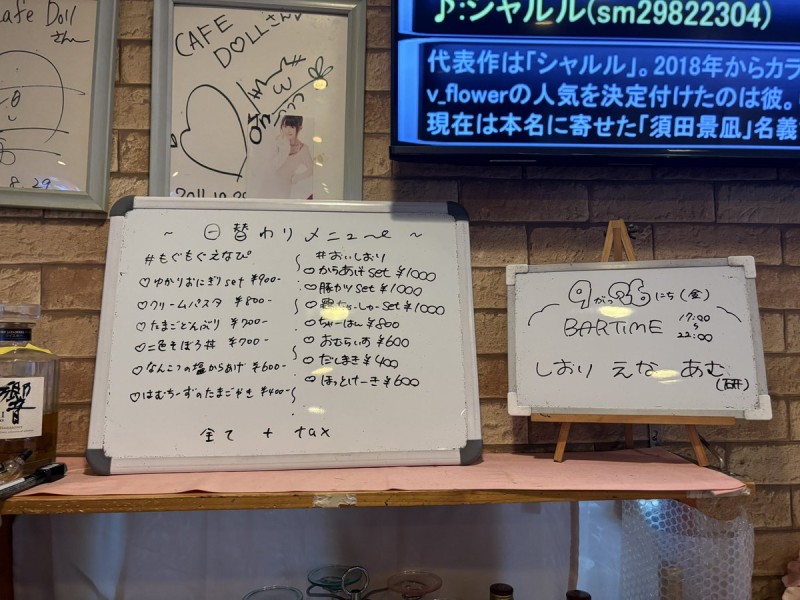 Cafe Doll
さん
8.29
CAFE
DOLLさん
♪:シャルル(sm29822304)
代表作は「シャルル」。2018年からカラ
v_flowerの人気を決定付けたのは彼。
現在は本名に寄せた「須田景凪」名義
~ 日替わりメニュー ~
#もぐもぐえなぴ
♡ゆかりおにぎりset ¥900-
♡クリームパスタ ¥800-
♡たまごどんぶり ¥700-
♡二色そぼろ丼 ¥700-
♡なんこつの塩からあげ ¥600-
♡はむちーずのたまごやき ¥400-
#おいしおり
♡からあげset ¥1000
♡豚カツset ¥1000
♡ちゃーしゅーset ¥1000
♡ちゃーはん ¥800
♡おむらいす ¥600
♡だしまき ¥400
♡ほっとけーき ¥600
全て + tax
9がつ26にち(金)
BARTIME
17:00
~
22:00
しおり えな あむ
響